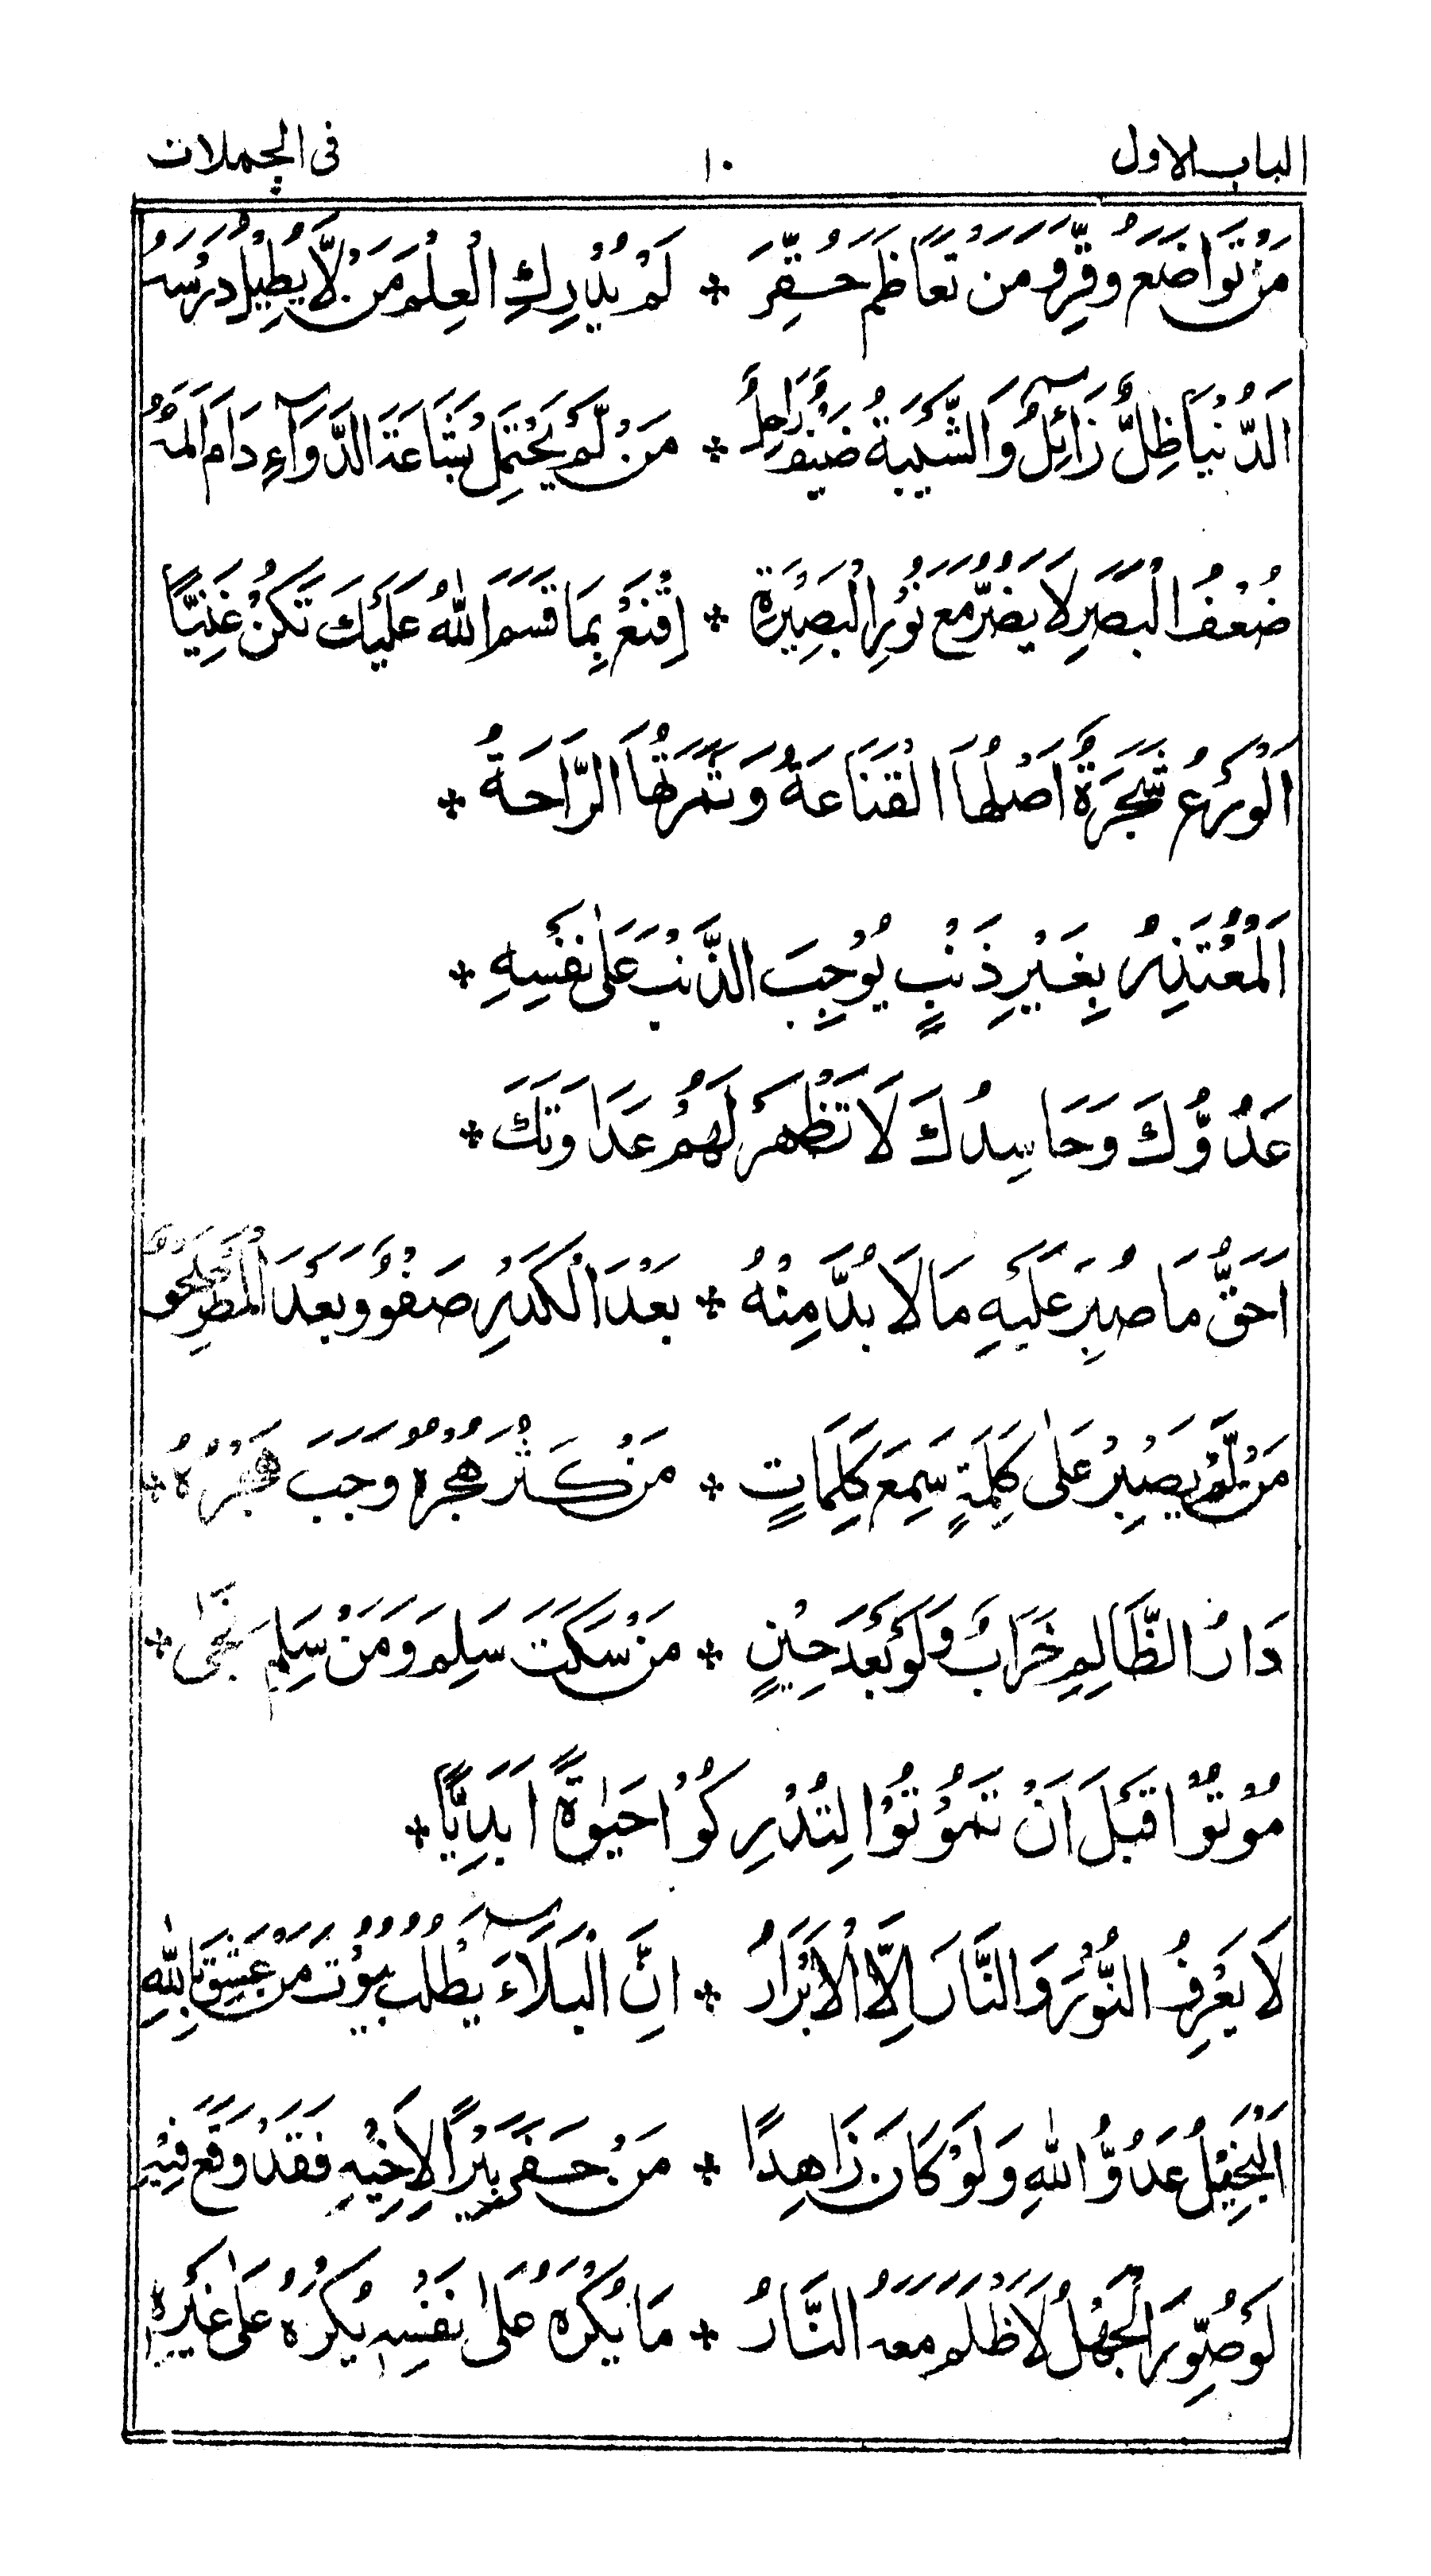 الباب الاول ١٠ فى الجملات
مَنْ تَوَاضَعَ وُقِّرَ وَمَنْ تَعَاظَمَ حُقِّرَ * لَمْ يُدْرِكِ الْعِلْمَ مَنْ لَّا يُطِيْلُ دَرْسَهُ
اَلدُّنْيَا ظِلٌّ زَآئِلٌ وَالشَّيْبَةُ ضَيْفٌ رَاحِلٌ * مَنْ لَّمْ يَحْتَمِلْ بَشَاعَةَ الدَّوَآءِ دَامَ اَلَمُهُ
ضُعْفُ الْبَصَرِ لَا يَضُرُّ مَعَ نُوْرِ الْبَصِيْرَةِ * اِقْنَعْ بِمَا قَسَمَ اللهُ عَلَيْكَ تَكُنْ غَنِيًّا
اَلْوَرَعُ شَجَرَةٌ اَصْلُهَا الْقَنَاعَةُ وَثَمَرَتُهَا الرَّاحَةُ *
اَلْمُعْتَذِرُ بِغَيْرِ ذَنْبٍ يُوْجِبُ الذَّنْبَ عَلٰى نَفْسِهِ *
عَدُوُّكَ وَحَاسِدُكَ لَا تَظْهَرْ لَهُمْ عَدَاوَتَكَ *
اَحَقُّ مَا صُبِرَ عَلَيْهِ مَا لَا بُدَّ مِنْهُ * بَعْدَ الْكَدَرِ صَفْوٌ وَبَعْدَ الْمَطَرِ صَحْوٌ
مَنْ لَّمْ يَصْبِرْ عَلٰى كَلِمَةٍ سَمِعَ كَلِمَاتٍ * مَنْ كَثُرَ هُجْرُهُ وَجَبَ هَجْرُهُ *
دَارُ الظَّالِمِ خَرَابٌ وَلَوْ بَعْدَ حِيْنٍ * مَنْ سَكَتَ سَلِمَ وَمَنْ سَلِمَ نَجٰى *
مُوْتُوْا قَبْلَ اَنْ تَمُوْتُوْا لِتُدْرِكُوْا حَيٰوةً اَبَدِيًّا *
لَا يَعْرِفُ النُّوْرَ وَالنَّارَ اِلَّا الْاَبْرَارُ * اِنَّ الْبَلَآءَ يَطْلُبُ بُيُوْتَ مَنْ عَشِقَ بِاللهِ
اَلْبَخِيْلُ عَدُوُّ اللهِ وَلَوْ كَانَ زَاهِدًا * مَنْ حَفَرَ بِيْرًا لِاَخِيْهِ فَقَدْ وَقَعَ فِيْهِ
لَوْ صُوِّرَ الْجَهْلُ لَاَظْلَمَ مَعَهُ النَّارُ * مَا يُكْرَهُ عَلٰى نَفْسِهِ يُكْرَهُ عَلٰى غَيْرِهِ